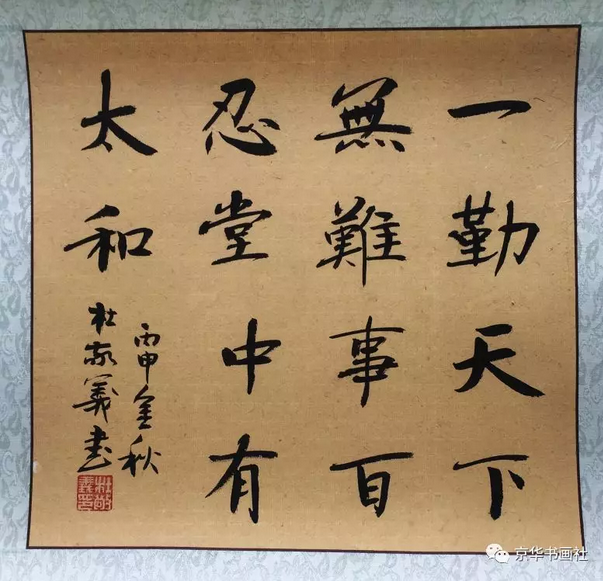 一勤天下
無難事百
忍堂中有
太和
丙申金秋
杜敬義書
杜敬義印
京华书画社